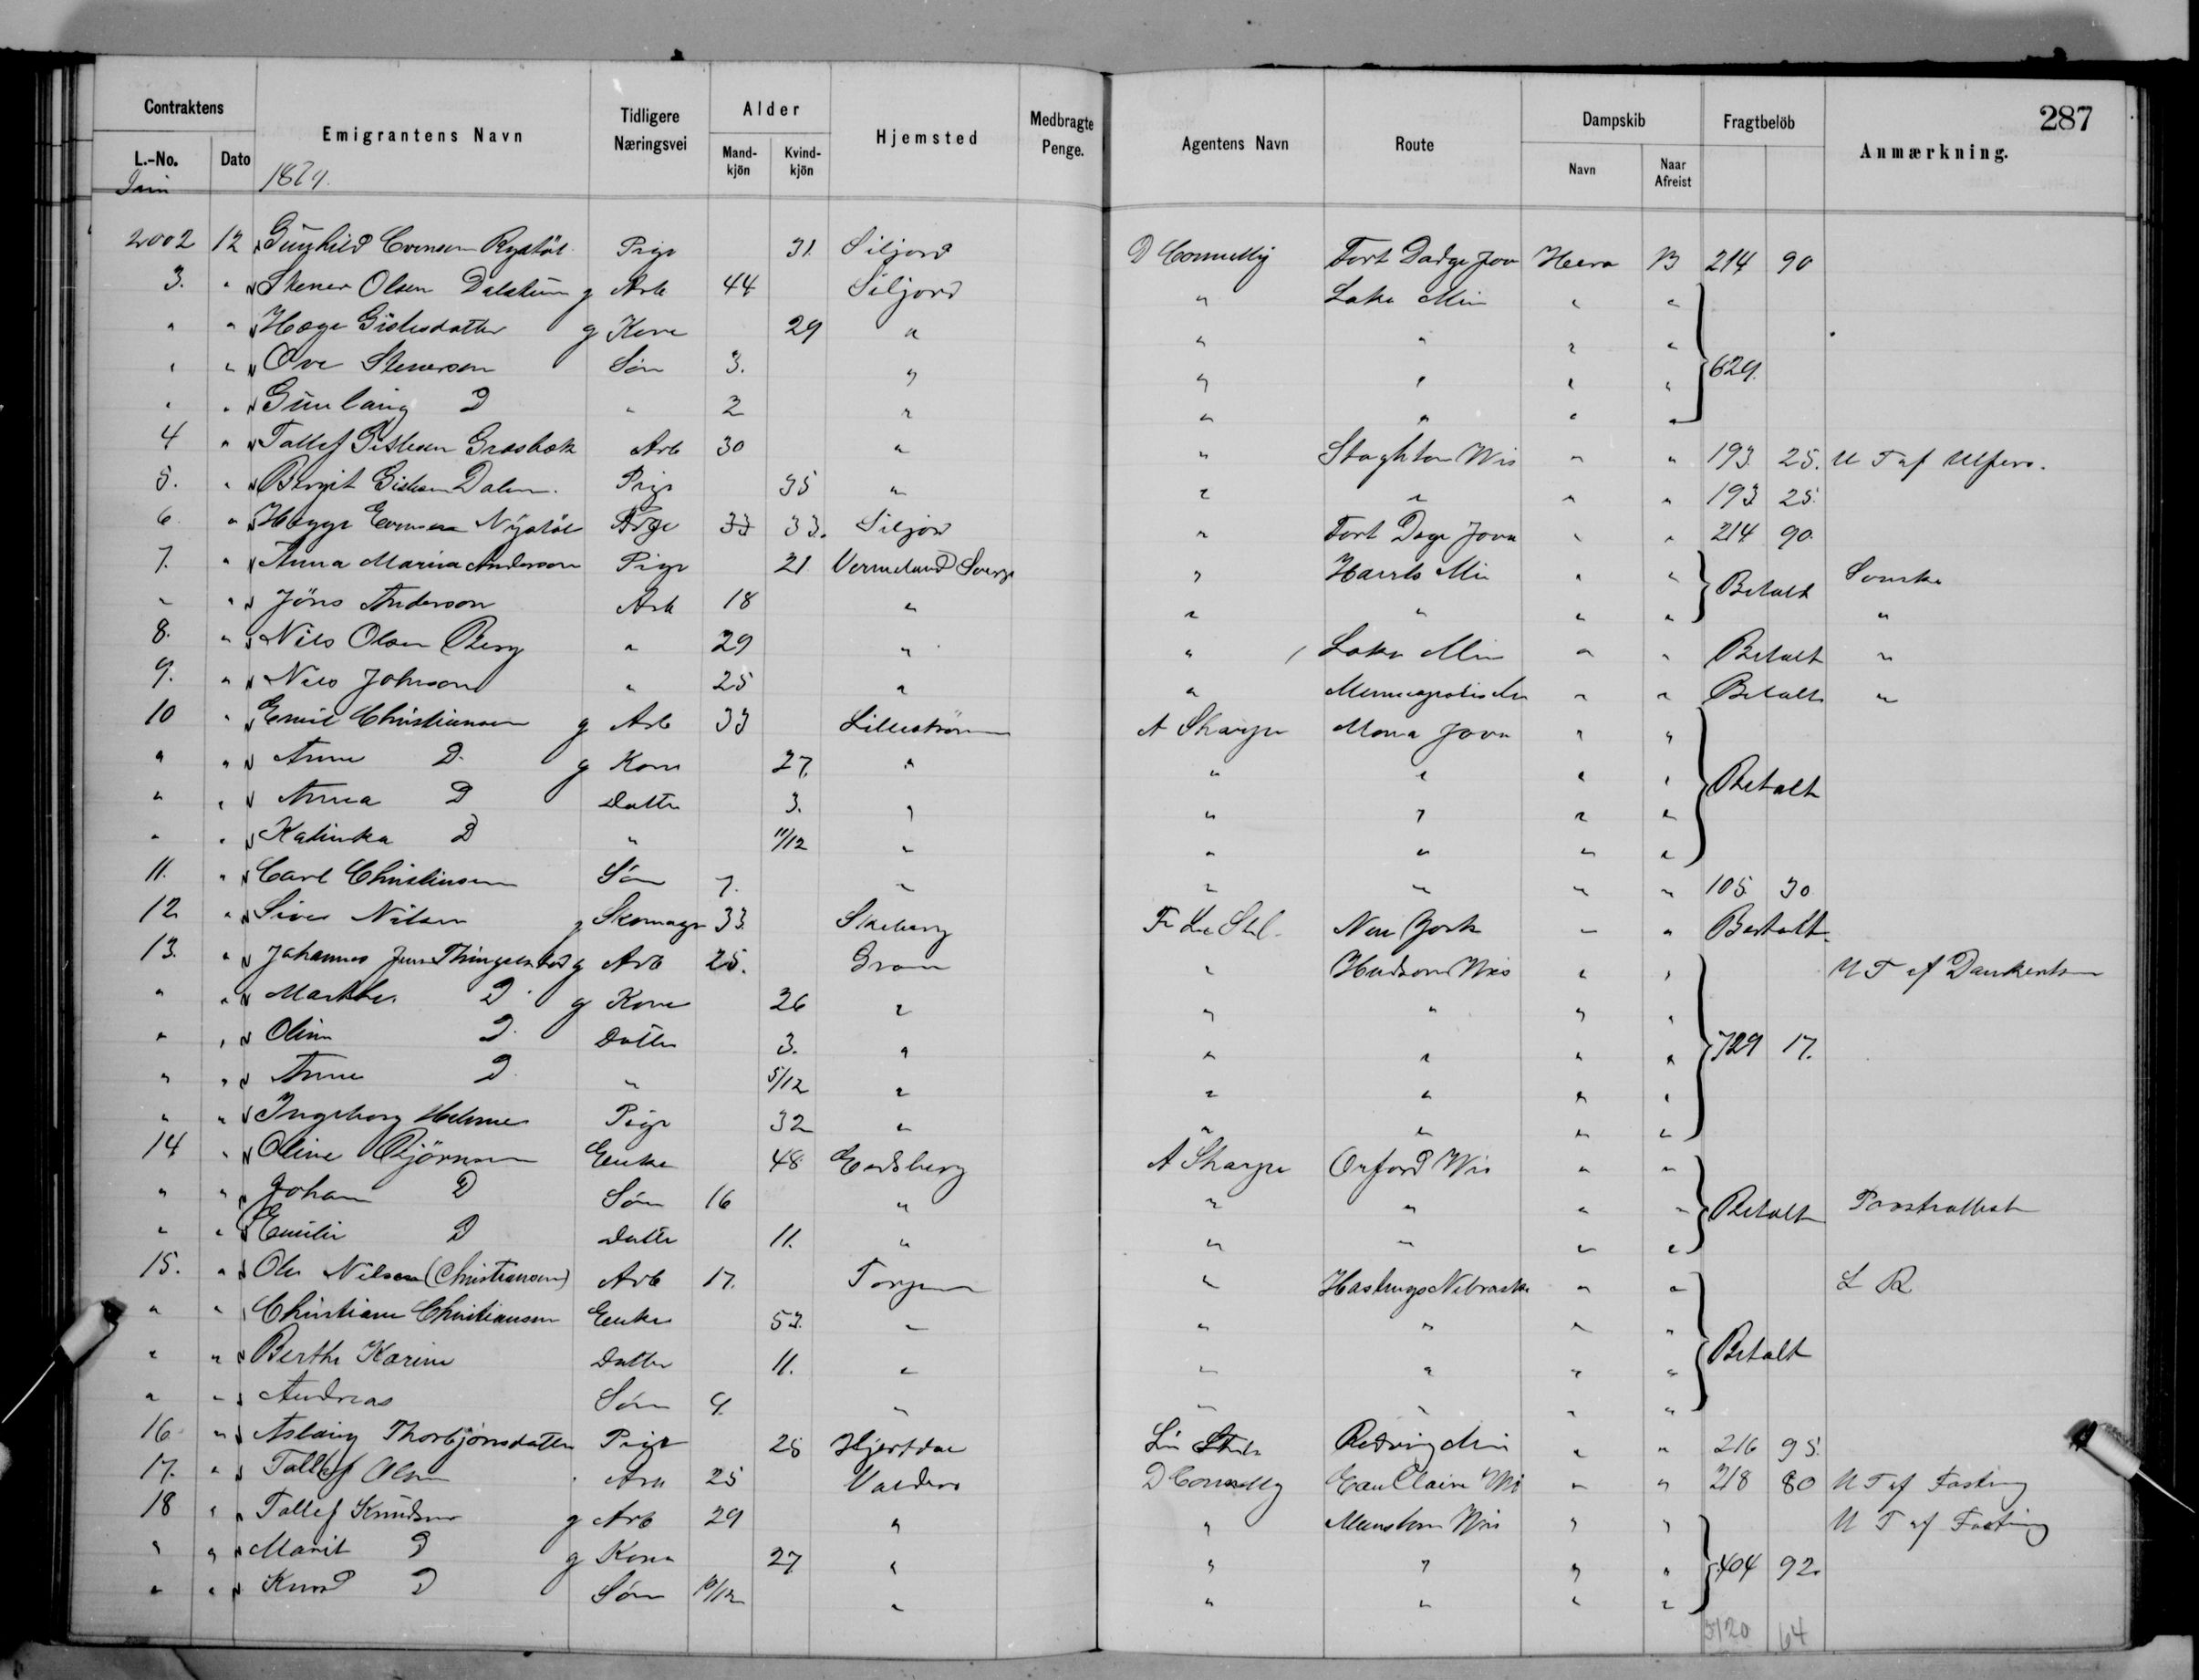 287
Contraktens Emigrantens Navn Tidligere Næringsvei Alder Hjemsted Medbragte Penge. Agentens Navn Route Dampskib Fragtbelöb Anmærkning.
L.-No. Dato Mandkjön Kvindkjön Navn Naar Afreist
Juni 1879.
2002 12 Gunhild Evensen Pige 31. Siljord D Connelly Fort Dodge Jova Hero B 214 90
3. " Stener Olsen Dalstun g Arb 44 Siljord " Lake Min " "
" " Hæge Gislesdatter g Kone 29 " " " " "
" " Ove Stenersen Søn 3. " " " " " 629.
" " Gunlaug D " 2 " " " " "
4 " Tallef Gislesen Arb 30 " " Stoghton Wis " " 193 25. U T af
5. " Birgit Gislesen Dalen. Pige 35 " " " " " 193 25.
6 " Hæge Evensen Nystöl Pige 33 33. Siljord " Fort Doge Jova " " 214 90.
7. " Anna Maria Anderson Pige 21 Vermeland Sverge " Harris Min " " Betalt Svenske
" " Jöns Anderson Arb 18 " " " " " "
8. " Nils Olsen Berg " 29 " " Lake Min " " Betalt "
9. " Nils Johnson " 25 " " Minneapolis Min " " Betalt "
10 " Emil Christiansen g Arb 33 Lilleström A Sharpe Mona Jova " "
" " Anne D. g Kone 27. " " " " " Betalt
" " Anna D Datter 3. " " " " "
" " Katinka D " 11/12 " " " " "
11. " Carl Christiansen Søn 7. " " " " " 105 30
12 " Siver Nilsen g Skomager 33. Skeberg New York " " Betalt.
13. " Johannes Jensen g Arb 25. Gran " Hudson Wis " " U T af
" " Marthe D. g Kone 26 " " " " "
" " Oline D. Datter 3. " " " " " 729 17.
" " Anne D. " 5/12 " " " " "
" " Ingeborg Pige 32 " " " " "
14 " Oline Björnsen Enke 48 Eidsberg A Sharpe Oxford Wis " "
" " Johan D Søn 16 " " " " " Betalt
" " Emilie D Datter 11. " " " " "
15. " Ole Nilsen (Christiansen) Arb 17. Torpen " Hastings Nebraska " " L R
" " Christiane Christiansen Enke 53. " " " " " Betalt
" " Berthe Karine Datter 11. " " " " "
" " Andreas Søn 9. " " " " "
16 " Aslaug Thorbjörnsdatter Pige 25 Hjertdal Redwing Min " " 216 95.
17. " Tallef Olsen Arb 25 Valders D Connelly Eau Claire Wis " " 218 80 U T af Fasting
18 " Tallef Knudsen g Arb 29 " " Wis " " U T af Fasting
" " Marit D g Kone 27 " " " " " 404 92.
" " Knud D Søn 10/12 " " " " "
5120 64